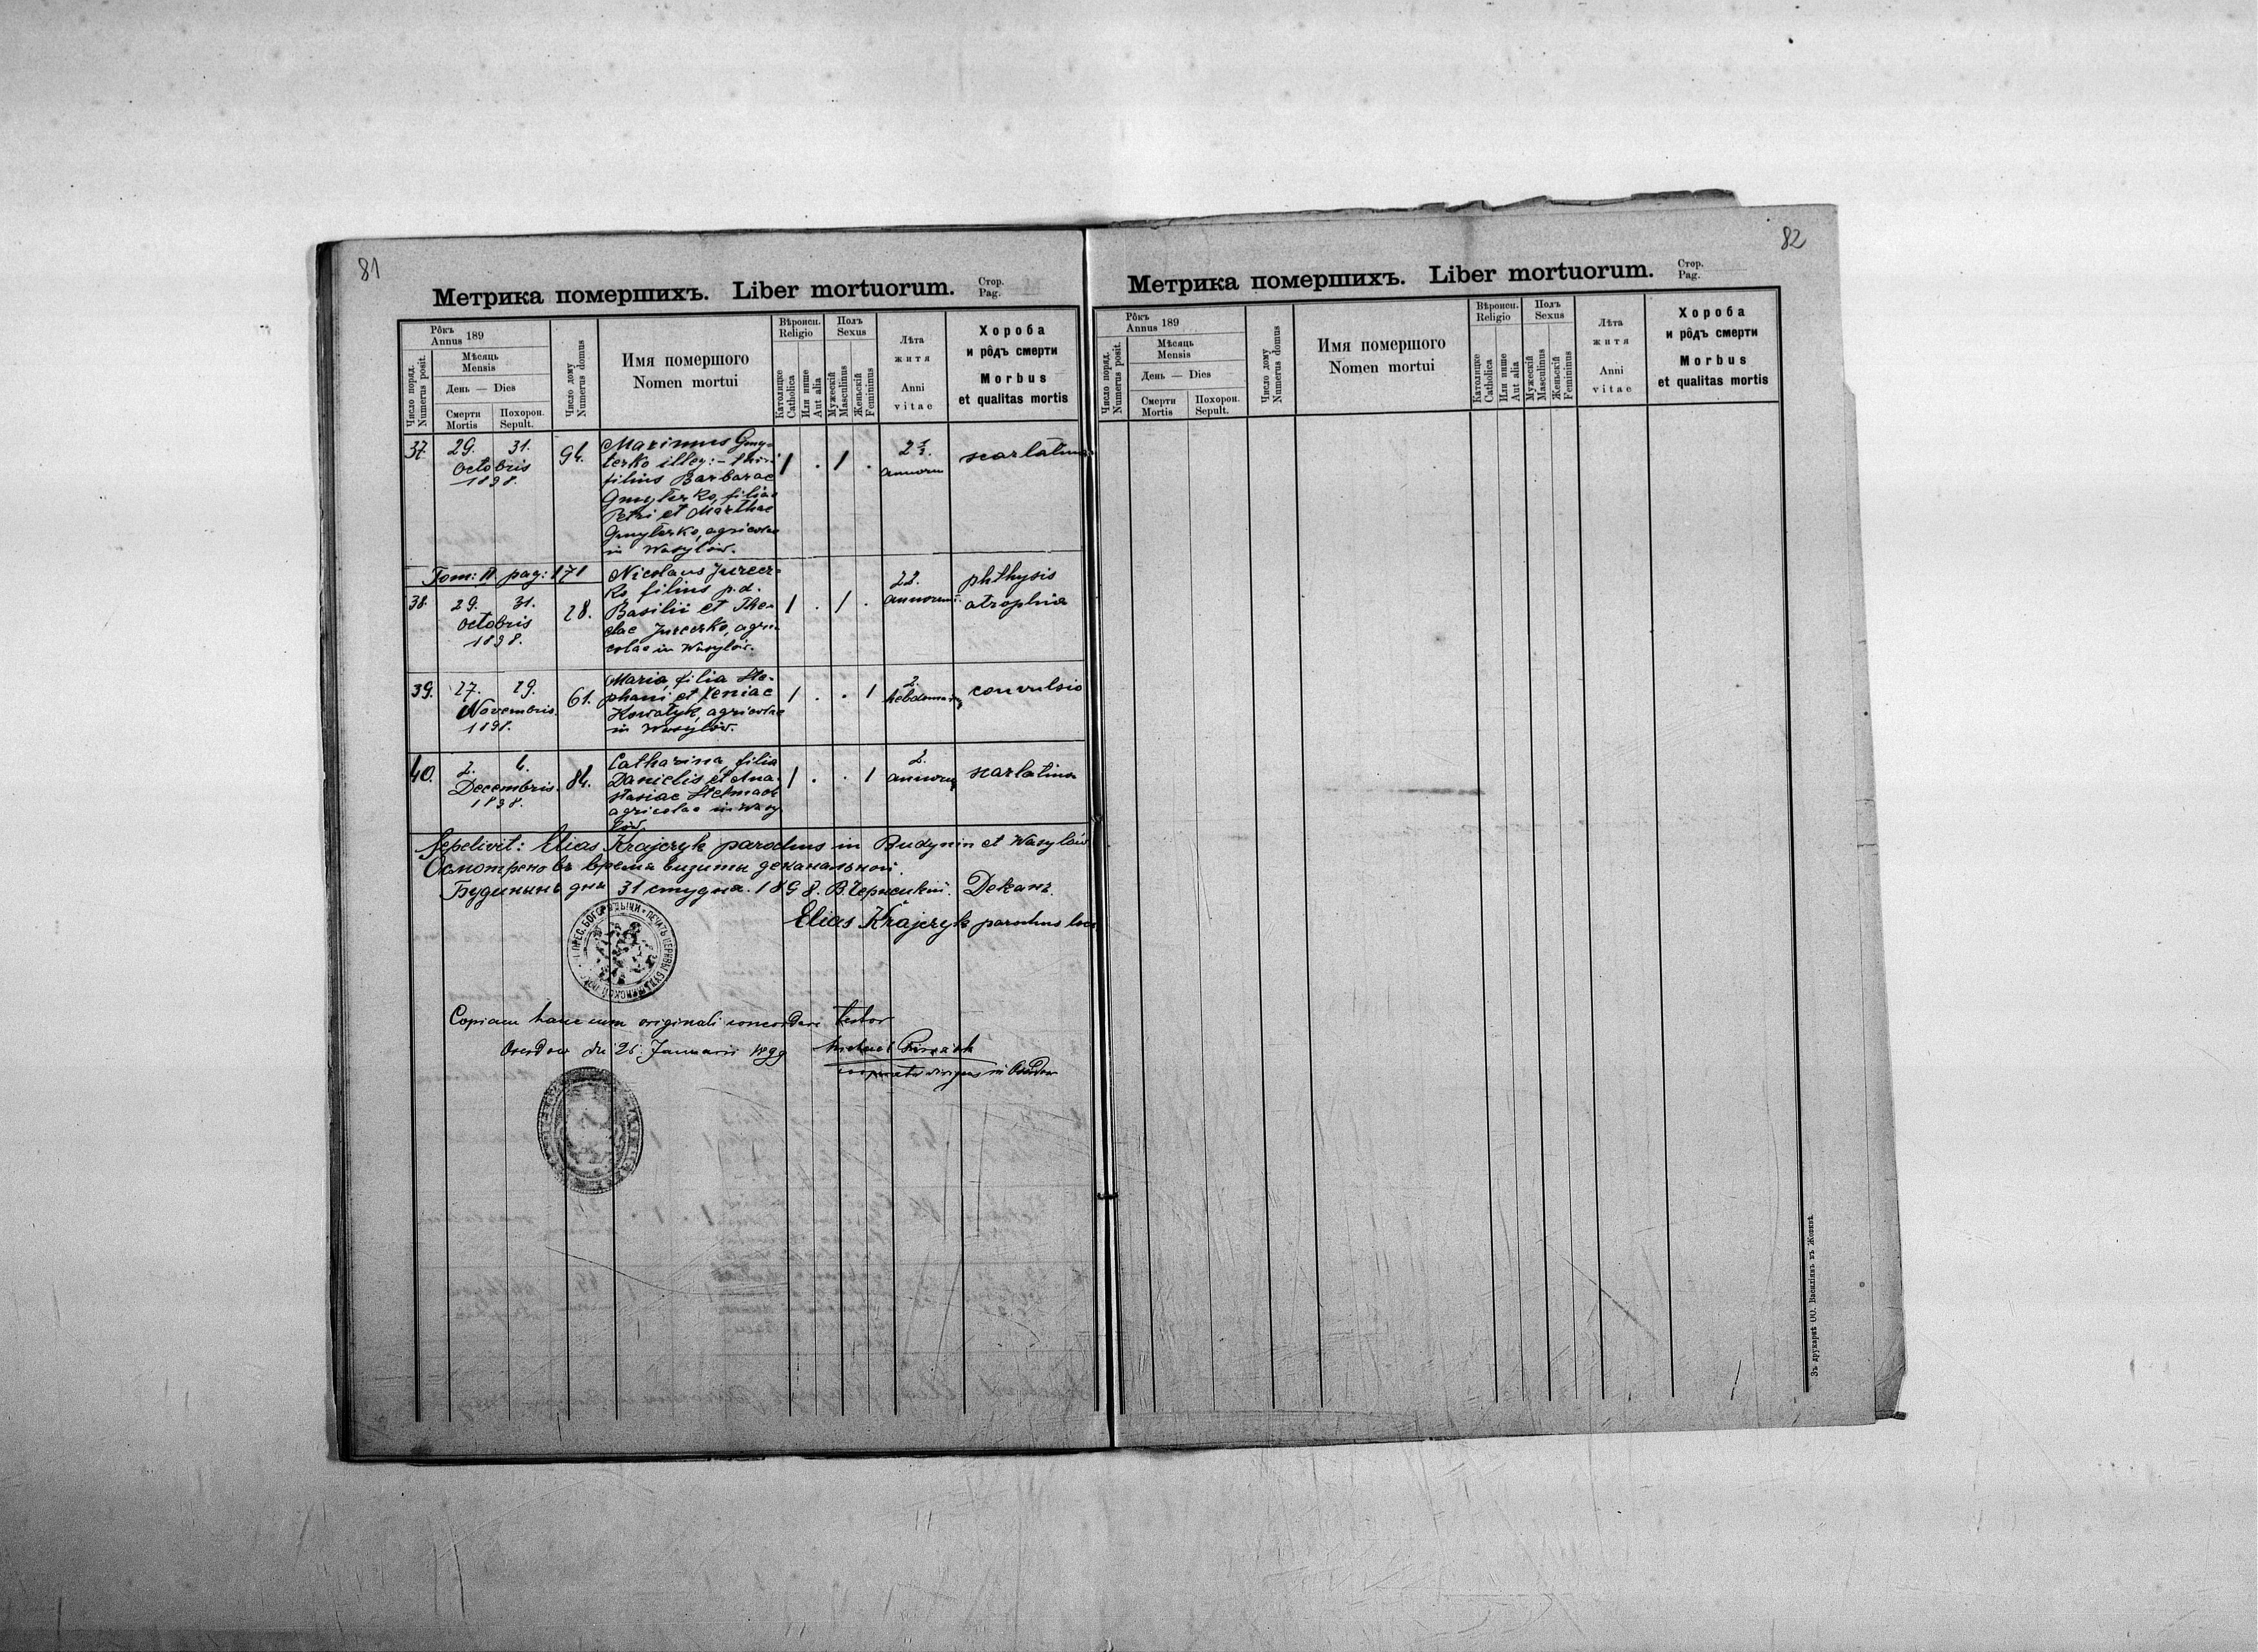 81
Метрика помершихъ. Liber mortuorum.
Стор.
Pag.
Рôкъ
Annus 189
Мѣсяць
Mensis
День — Dies
Число поряд.
Numerus posit.
Смерти
Mortis
Похорон.
Sepult.
Число дому
Numerus domus
Имя помершого
Nomen mortui
Вѣроисп.
Religio
Католицке
Catholica
Или инше
Aut alia
Полъ
Sexus
Мужескій
Masculinus
Женьскій
Femininus
Лѣта
житя
Anni
vitae
Хороба
и рôдъ смерти
Morbus
et qualitas mortis
37. 29. 31.
Octobris
1898.
94.
Marinus Gmy-
terko illeg: - thori
filius Barbarae
Gmyterko, filiae
Petri et Marthae
Gmyterko, agricolae
in Wasylów.
1 . 1 .
2½
annorum
scarlatina
Tom: II pag: 171
38. 29. 31.
Octobris
1898.
28.
Nicolaus Jurecz-
ko filius p.d.
Basilii et The-
clae Jureczko, agri-
colae in Wasylów.
1 . 1 .
22.
annorum
phthysis
atrophia
39. 27. 29.
Novembris
1898.
61.
Maria, filia Ste-
phani et Xeniae
Kowałyk, agricolae
in Wasylów.
1 . . 1
2.
hebdomadas
convulsio
40. 2. 4.
Decembris.
1898.
84.
Catharina, filia
Danielis et Ana-
stasiae Stelmach
agricolae in Wasy-
lów.
1 . . 1
2.
annorum
scarlatina
Sepelivit: Elias Krajczyk parochus in Budynin et Wasylów
Осмотрено въ время визиты деканальной.
Будынынъ дня 31 студня 1898. Декань.
Elias Krajczyk parochus loci
Copiam hanc cum originali concordare testor
die 26. Januarii 1899
82
Метрика помершихъ. Liber mortuorum.
Стор.
Pag.
Рôкъ
Annus 189
Мѣсяць
Mensis
День — Dies
Число поряд.
Numerus posit.
Смерти
Mortis
Похорон.
Sepult.
Число дому
Numerus domus
Имя помершого
Nomen mortui
Вѣроисп.
Religio
Католицке
Catholica
Или инше
Aut alia
Полъ
Sexus
Мужескій
Masculinus
Женьскій
Femininus
Лѣта
житя
Anni
vitae
Хороба
и рôдъ смерти
Morbus
et qualitas mortis
Зъ друкарнѣ ОО. Василіянъ въ Жовквѣ.